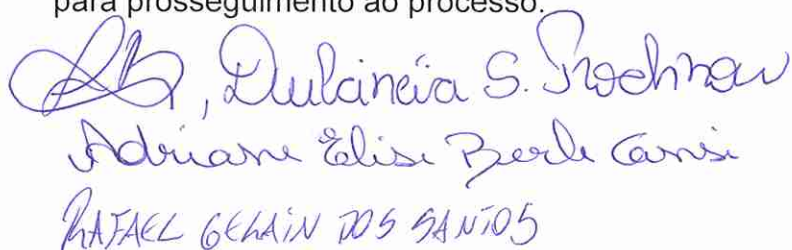 para prosseguimento ao processo.
, Dulcinéia S. Prochnow
Adriane Elise Berle Canisi
RAFAEL GELAIN DOS SANTOS